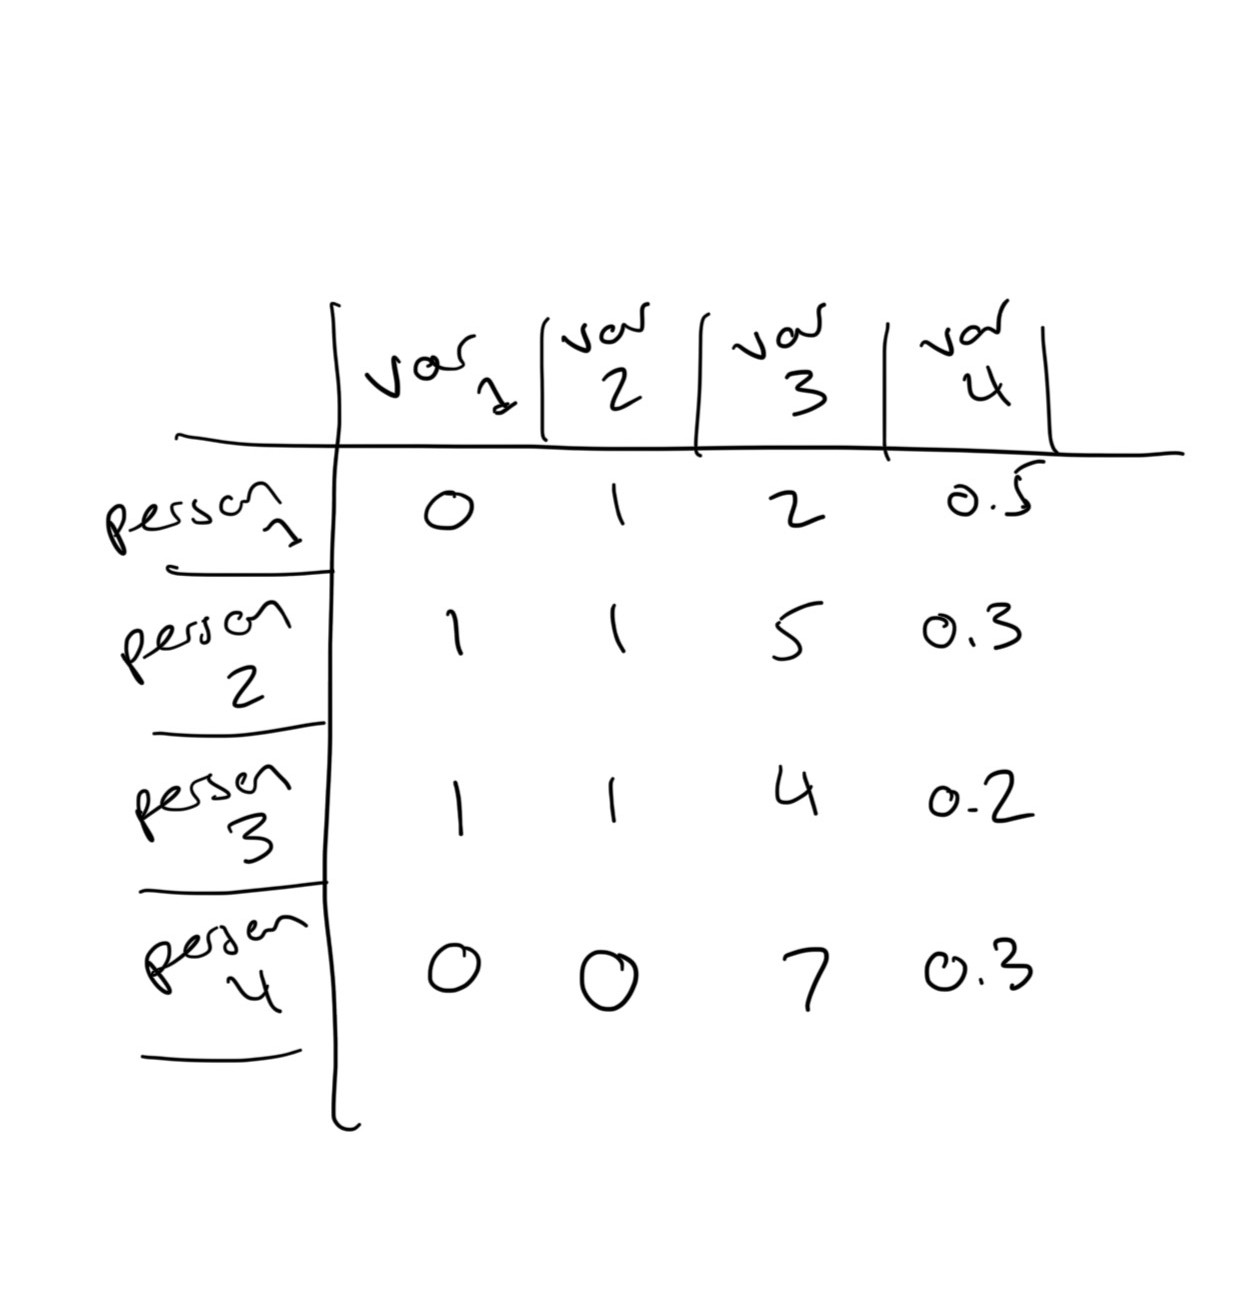 var 1 var 2 var 3 var 4
person 1 0 1 2 0.5
person 2 1 1 5 0.3
person 3 1 1 4 0.2
person 4 0 0 7 0.3